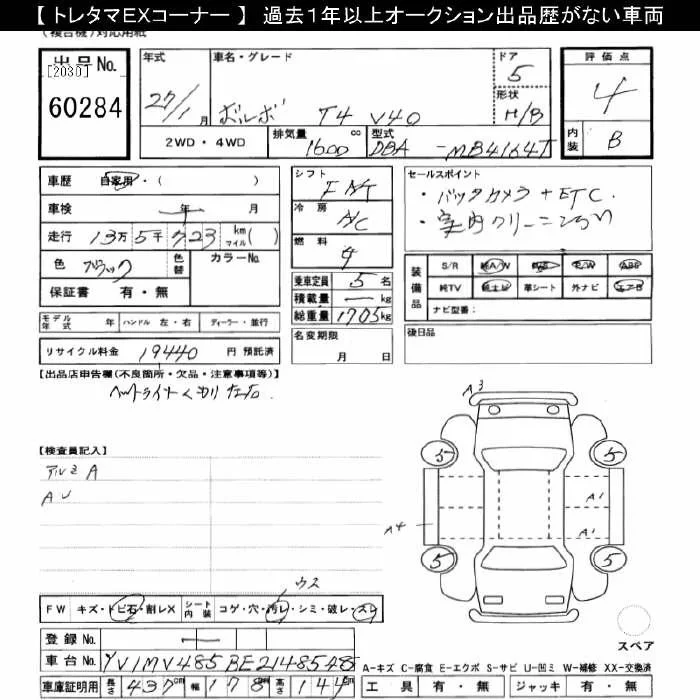 【 トレタマEXコーナー 】 過去1年以上オークション出品歴がない車両
(複合機)対応用紙
出品No.
[2030]
60284
年式
27/1月
車名・グレード
ボルボ T4 V40
ドア
5
形状
H/B
評価点
4
内装
B
2WD・4WD
排気量
1600 cc
型式
DBA-MB4164T
車歴 自家用・( )
車検 年 月
走行 13万5千723 km マイル( )
色 ブラック
色替
カラーNo.
保証書 有・無
シフト
FAT
冷房
A/C
燃料
ガ
乗車定員 5 名
積載量 ー kg
総重量 1705 kg
セールスポイント
・バックカメラ+ETC.
・室内クリーニング
装備品
S/R 純A/W P/S P/W ABS
純TV 純ナビ 革シート 外ナビ エアB
ナビ型番:
モデル年式 年 ハンドル 左・右 ディーラー・並行
リサイクル料金 19440 円 預託済
名変期限
月 日
後日品
【出品店申告欄(不良箇所・欠品・注意事項等)】
ヘッドライトくもり
A3
5
5
A1
A4
A1
5
5
【検査員記入】
アルミA
AU
ウス
FW キズ・トビ石・割レX シート内装 コゲ・穴・汚レ・シミ・破レ・スレ
スペア
登録No. ー
車台No. YV1MV485BE2148548
A-キズ C-腐食 E-エクボ S-サビ U-凹ミ W-補修 XX-交換済
車庫証明用 長さ 437cm 幅 178cm 高さ 144cm
工具 有・無 ジャッキ 有・無